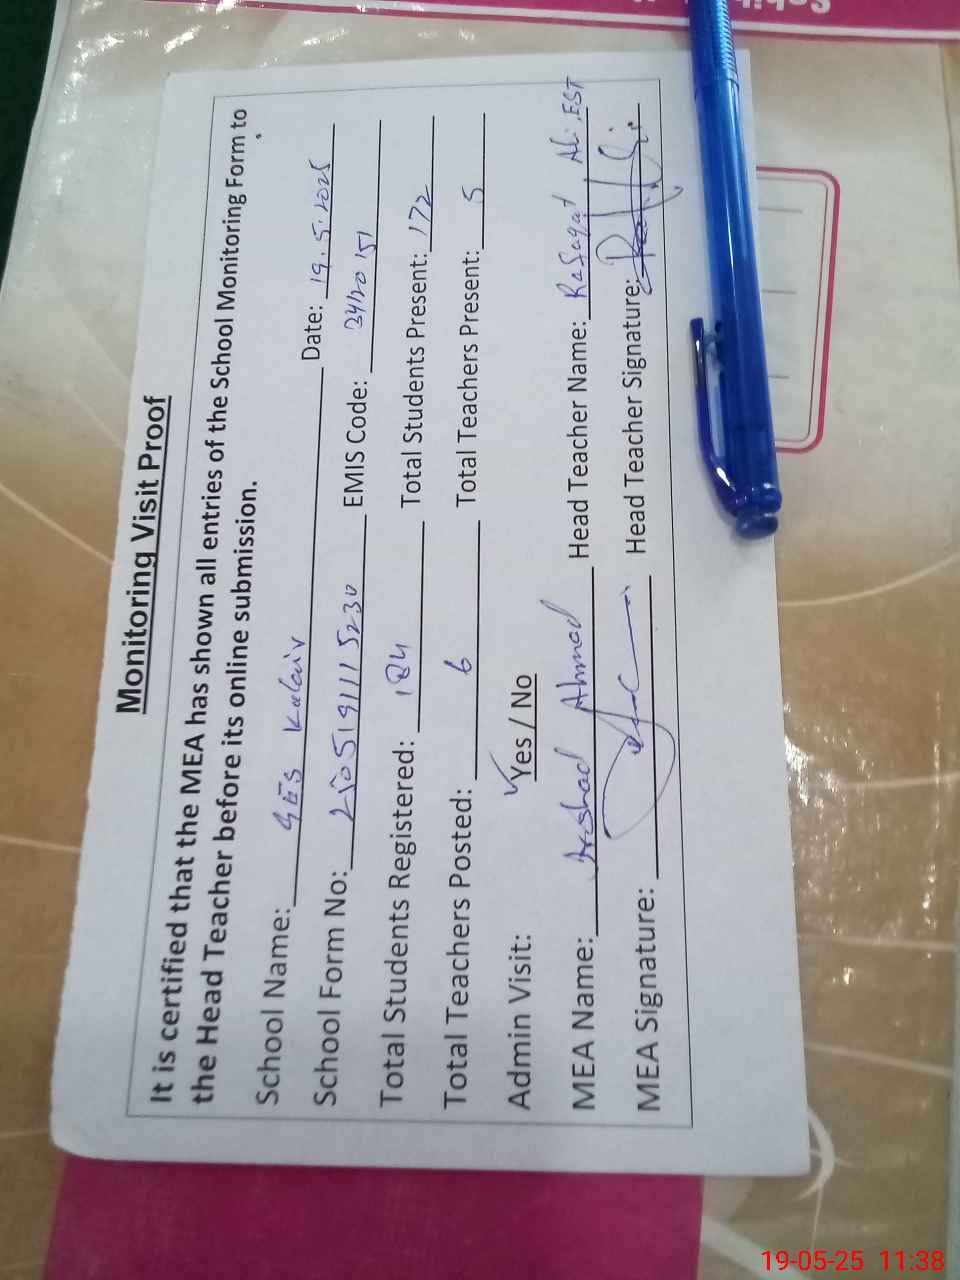 Monitoring Visit Proof
It is certified that the MEA has shown all entries of the School Monitoring Form to
the Head Teacher before its online submission.
School Name: GES Kalair Date: 19.5.2025
School Form No: 2505191115230 EMIS Code: 34120151
Total Students Registered: 184 Total Students Present: 172
Total Teachers Posted: 6 Total Teachers Present: 5
Admin Visit: ✓Yes / No
MEA Name: Arshad Ahmad Head Teacher Name: Rafaqat Ali, EST
MEA Signature: Head Teacher Signature:
19-05-25 11:38